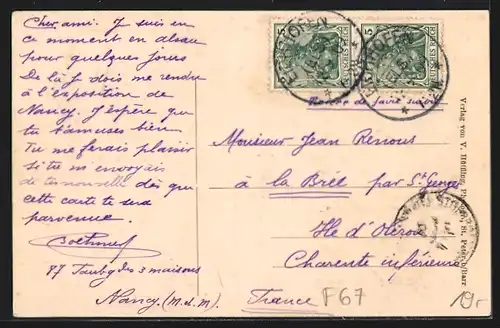 Cher ami. Je suis en
ce moment en alsace
pour quelques jours
De là je dois me rendre
à l'exposition de
Nancy. J'espère que
tu t'amuses bien
Tu me ferais plaisir
si tu m'envoyais
de tes nouvelles dès que
cette carte te sera
parvenue.
77 Faubg des 3 maisons
Nancy (M. & M.)
5 5
DEUTSCHES REICH
Prière de faire suivre
Monsieur Jean Renous
à la Brée par St Georges
Ile d'Oléron
Charente inférieure
France
F67
Verlag von V.
19r